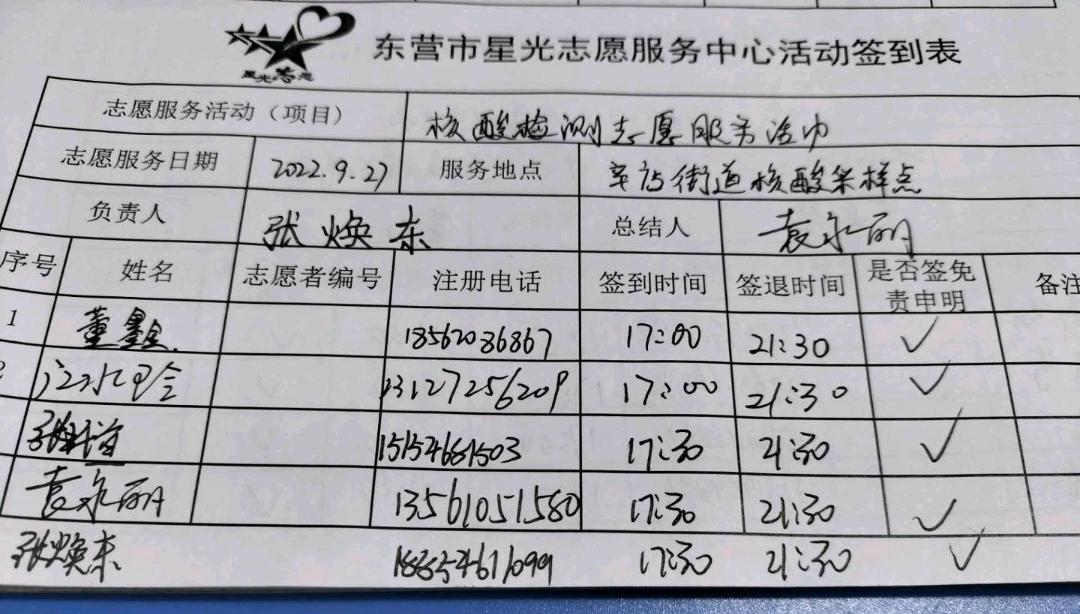 星光志愿
东营市星光志愿服务中心活动签到表
志愿服务活动（项目） 核酸检测志愿服务活动
志愿服务日期 2022.9.27 服务地点 辛店街道核酸采样点
负责人 张焕东 总结人 袁永丽
序号 姓名 志愿者编号 注册电话 签到时间 签退时间 是否签免责申明 备注
1 董鑫 18562086867 17:00 21:30 ✓
2 13127256209 17:00 21:30 ✓
15154681503 17:30 21:30 ✓
袁永丽 13561051580 17:30 21:30 ✓
张焕东 17:30 21:30 ✓